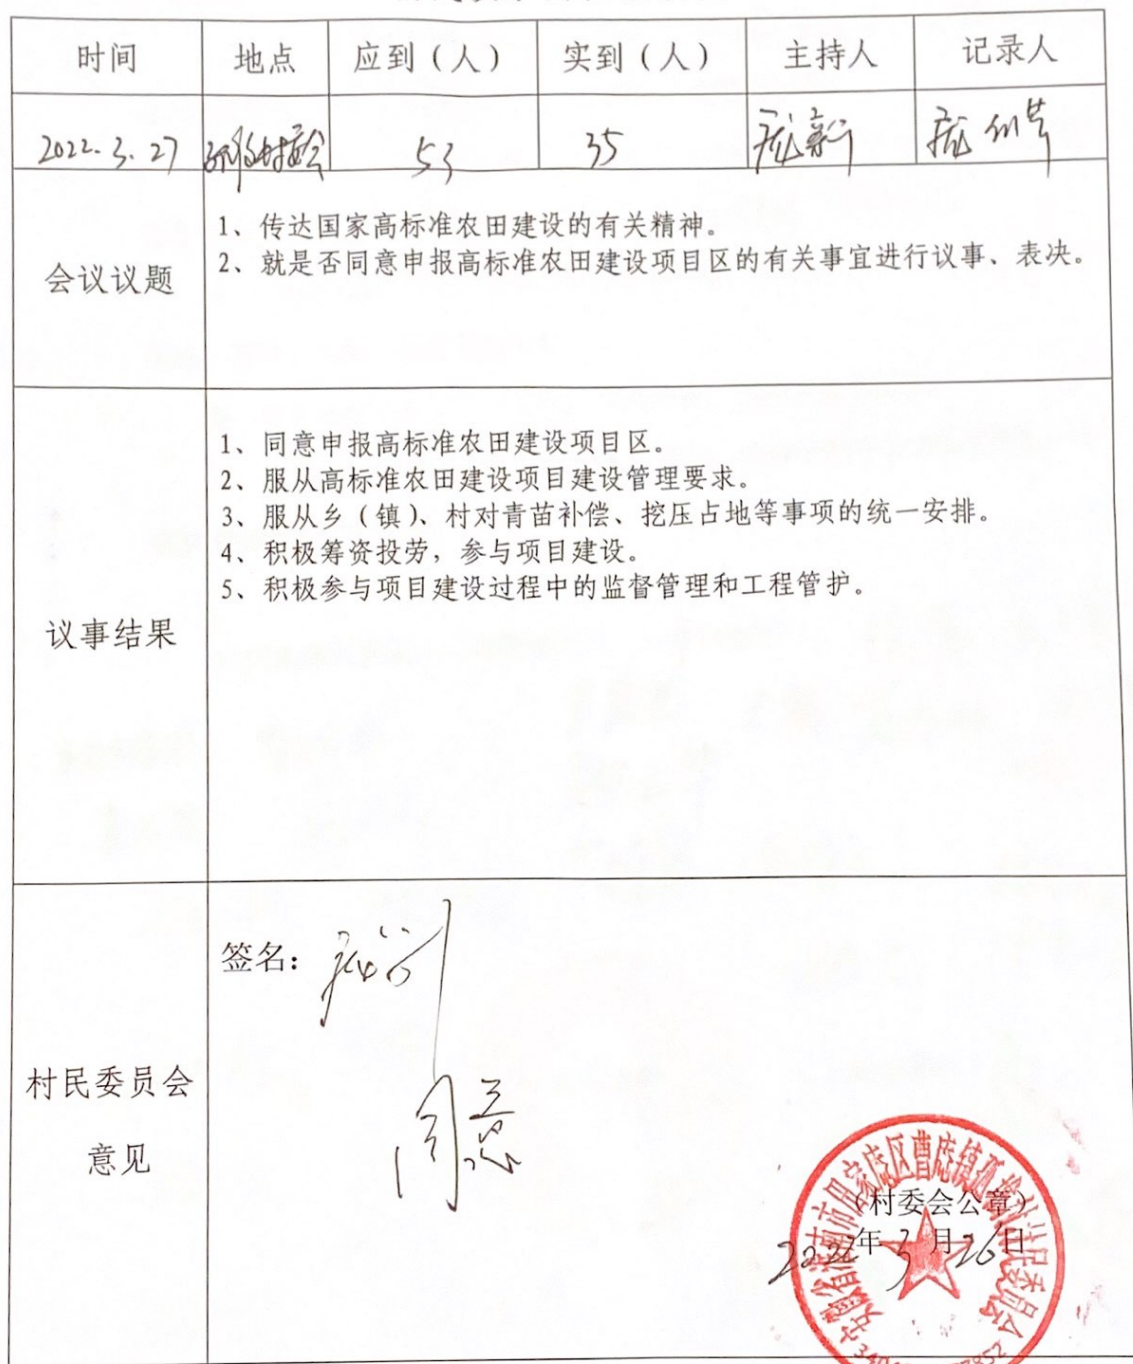 时间 地点 应到（人） 实到（人） 主持人 记录人
2022.3.27 村委会 53 35
会议议题
1、传达国家高标准农田建设的有关精神。
2、就是否同意申报高标准农田建设项目区的有关事宜进行议事、表决。
议事结果
1、同意申报高标准农田建设项目区。
2、服从高标准农田建设项目建设管理要求。
3、服从乡（镇）、村对青苗补偿、挖压占地等事项的统一安排。
4、积极筹资投劳，参与项目建设。
5、积极参与项目建设过程中的监督管理和工程管护。
村民委员会
意见
签名：
同意
（村委会公章）
2022年3月26日
安徽省淮南市田家庵区曹庵镇 村村民委员会